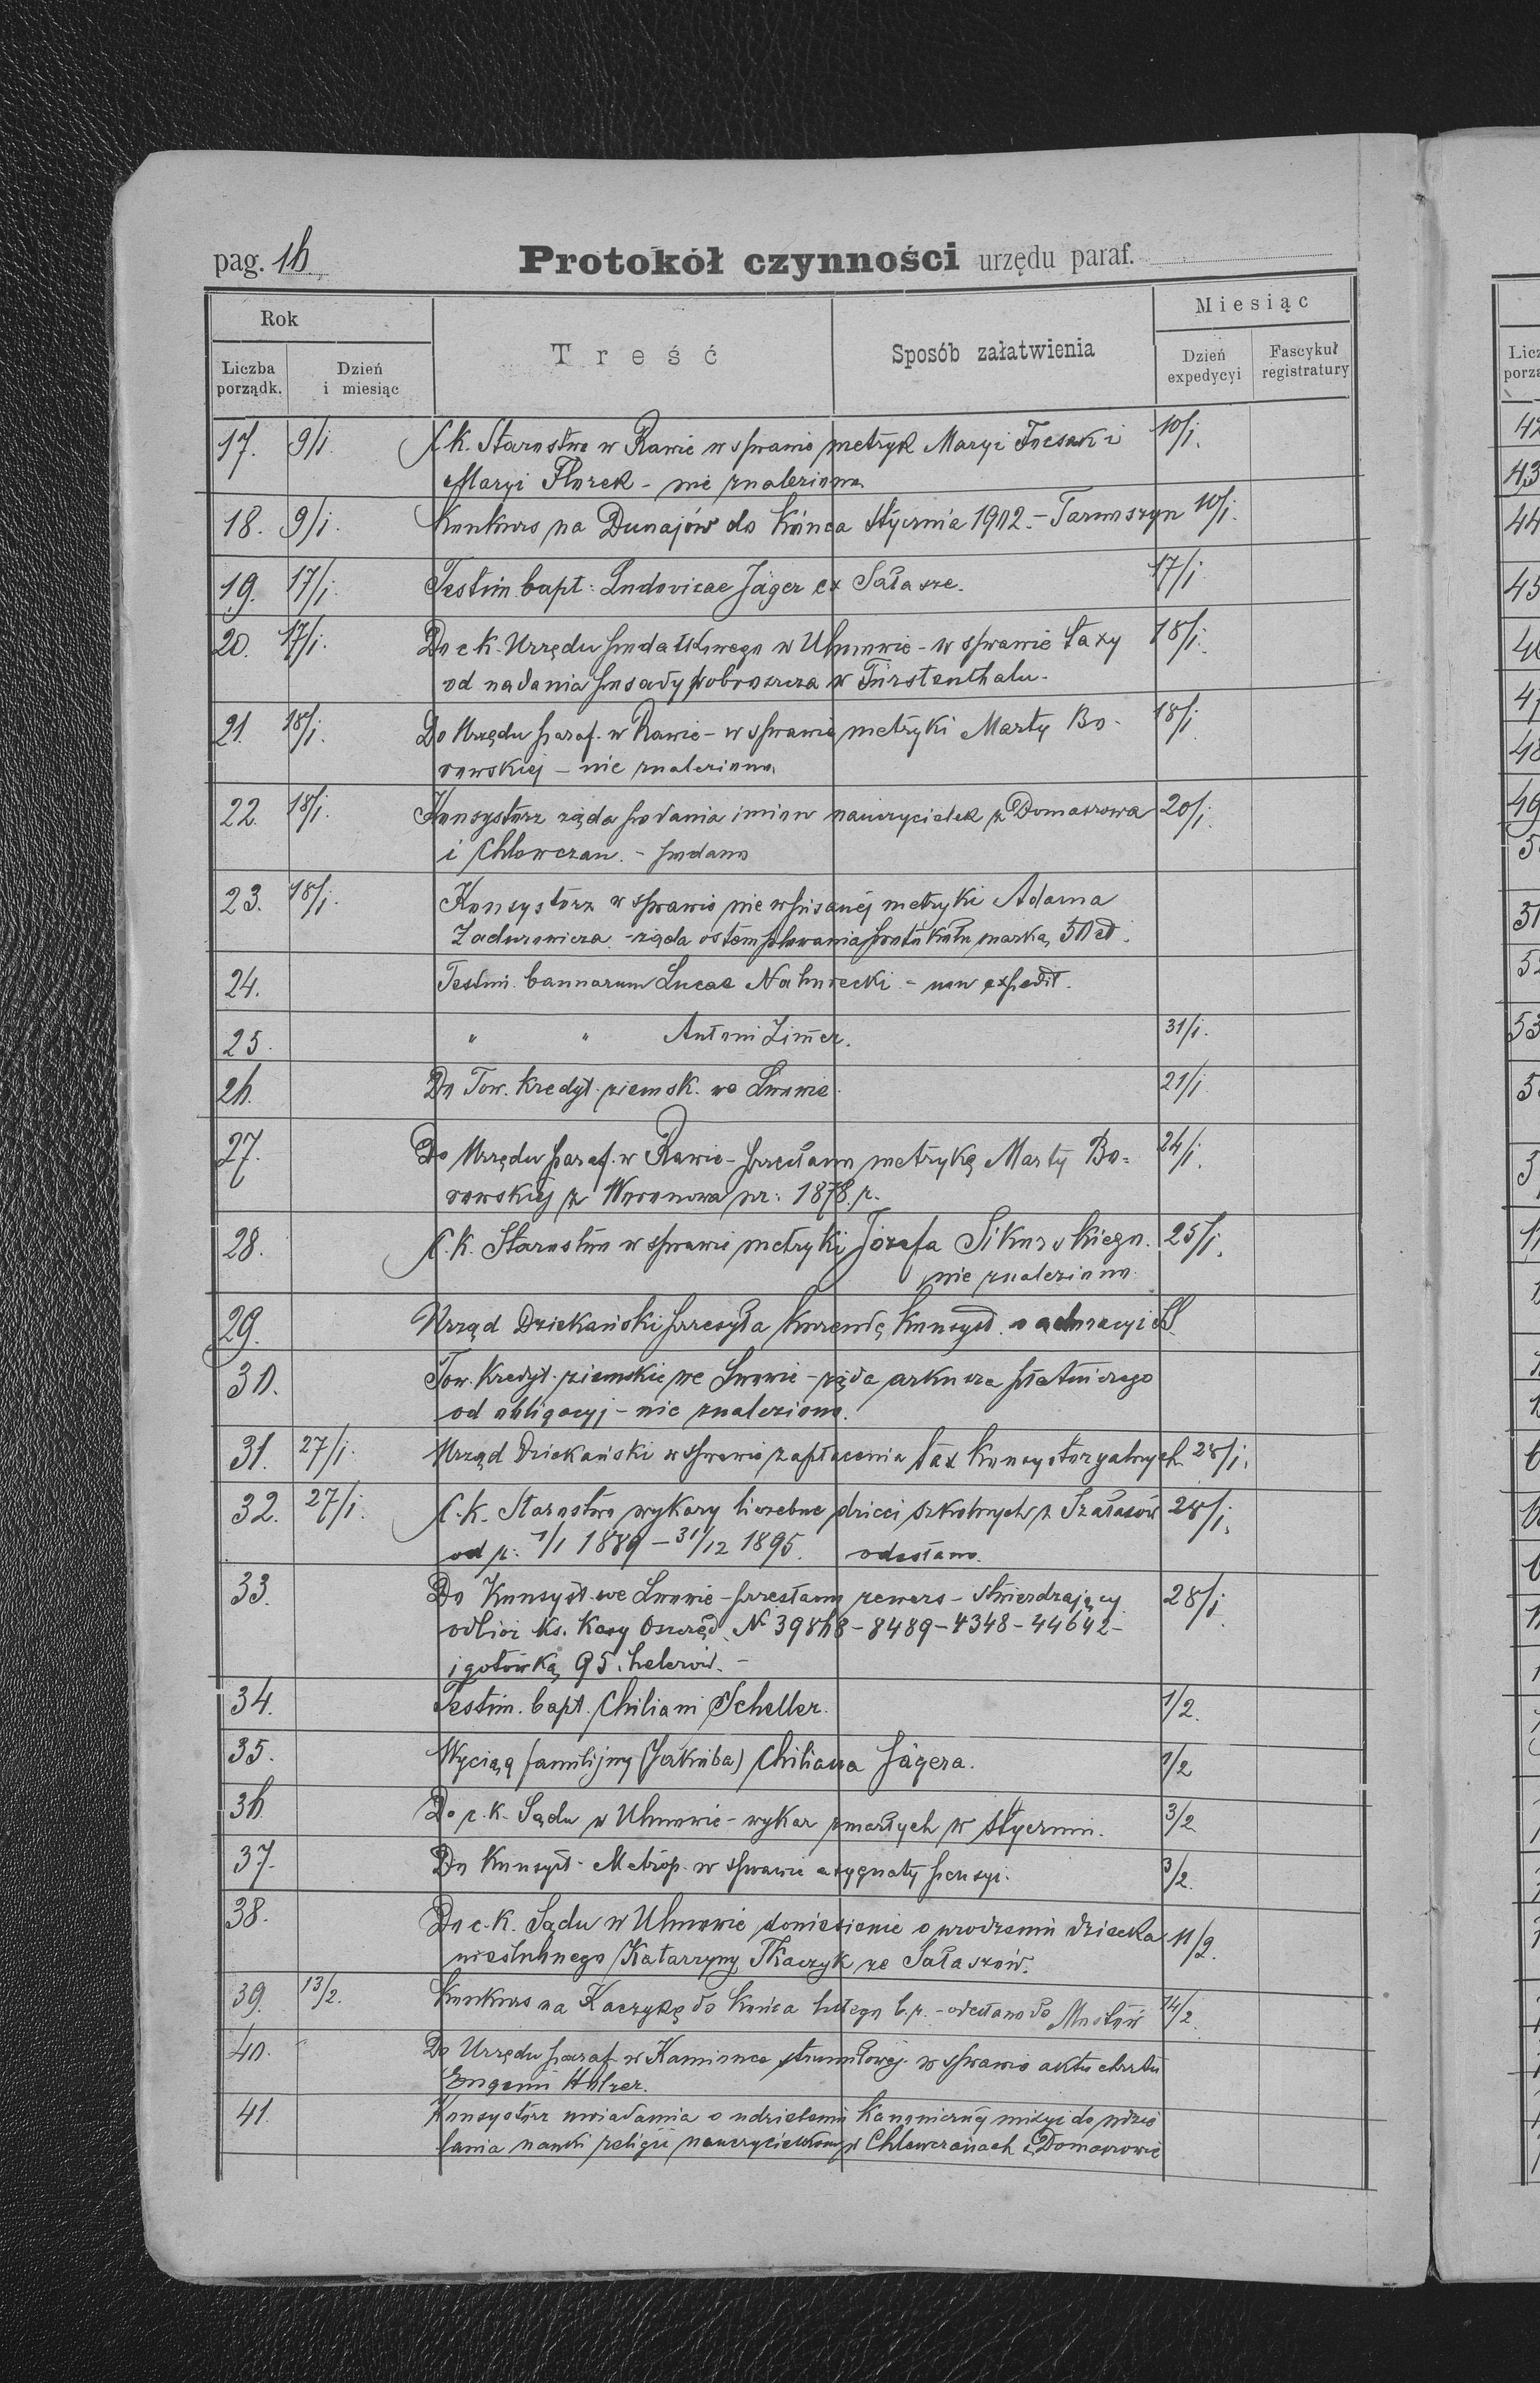 pag. 16. Protokół czynności urzędu paraf.
Rok Treść Sposób załatwienia Miesiąc
Liczba porządk. Dzień i miesiąc Dzień expedycyi Fascykuł registratury
17. 9/I C.k. Starostwo w Rawie w sprawie metryk Maryi i 10/I.
Maryi Florek - nie znaleziono
18. 9/I. Konkurs na Dunajów do końca stycznia 1902. - Tarnoszyn 10/I.
19. 17/I. Testim. bapt: Ludovicae Jäger ex Sałasze. 17/I
20. 17/I. Do c.k. Urzędu podatkowego w Uhnowie - w sprawie taxy 18/I.
od nadania posady proboszcza w Fürstenthalu.
21. 18/I. Do Urzędu paraf. w Rawie - w sprawie metryki Marty Bo- 18/I
rowskiej - nie znaleziono
22. 18/I. Konsystorz żąda podania imion nauczycielek z Domaszowa 20/I.
i Chlewczan. - podano
23. 18/I. Konsystorz w sprawie nie wpisanéj metryki Adama
Zadurowicza - żąda ostemplowania protokołu marką 50
24. Testim. bannorum Lucae - non expedit.
25. " " Antoni Zim̄er. 31/I.
26. Do Tow. kredyt. ziemsk. we Lwowie. 21/I
27. Do Urzędu paraf. w Rawie - przesłano metrykę Marty Bo- 24/I.
rowskiéj z Woronowa nr: 1878. r.
28. C.k. Starostwo w sprawie metryki Józefa Sikorskiego. 25/I.
nie znaleziono
29. Urząd Dziekański przesyła kurendę konsyst. o adoracyi
30. Tow. kredyt. ziemskie we Lwowie - żąda arkusza płatniczego
od obligacyj - nie znaleziono.
31. 27/I. Urząd Dziekański w sprawie zapłacenia tax konsystoryalnych 28/I.
32. 27/I. C.k. Starostwo wykazy liczebne dzieci szkolnych z Szałasów 28/I.
od r. 1/1 1889 - 31/12 1895. odesłano.
33. Do Konsyst. we Lwowie - przesłano rewers - stwierdzający 28/I.
odbiór ks. Kasy Oszczęd. № 39868 - 8489 - 4348 - 44642 -
i gotówką 95. helerów. -
34. Testim. bapt. Chiliani Scheller. 1/2.
35. Wyciąg familijny (Jakóba) Chiliana Jägera. 1/2
36. Do c.k. Sądu w Uhnowie - wykaz zmarłych w styczniu. 3/2
37. Do Konsyst. Metrop. w sprawie asygnaty pensyi. 3/2.
38. Do c.k. Sądu w Uhnowie doniesienie o urodzeniu dziecka 11/2.
nieślubnego Katarzyny Tkaczyk ze Sałaszów.
39. 13/2. Konkurs na Kaczykę do końca lutego b.r. - odesłano do Mostów 14/2
40. Do Urzędu paraf. w Kamionce strumiłowéj w sprawie aktu chrztu
Eugenii Holzer.
41. Konsystorz uwiadamia o udzieleniu kanonicznéj misyi do udzie
lania nauki religii nauczycielkom w Chlewczanach i Domaszowie